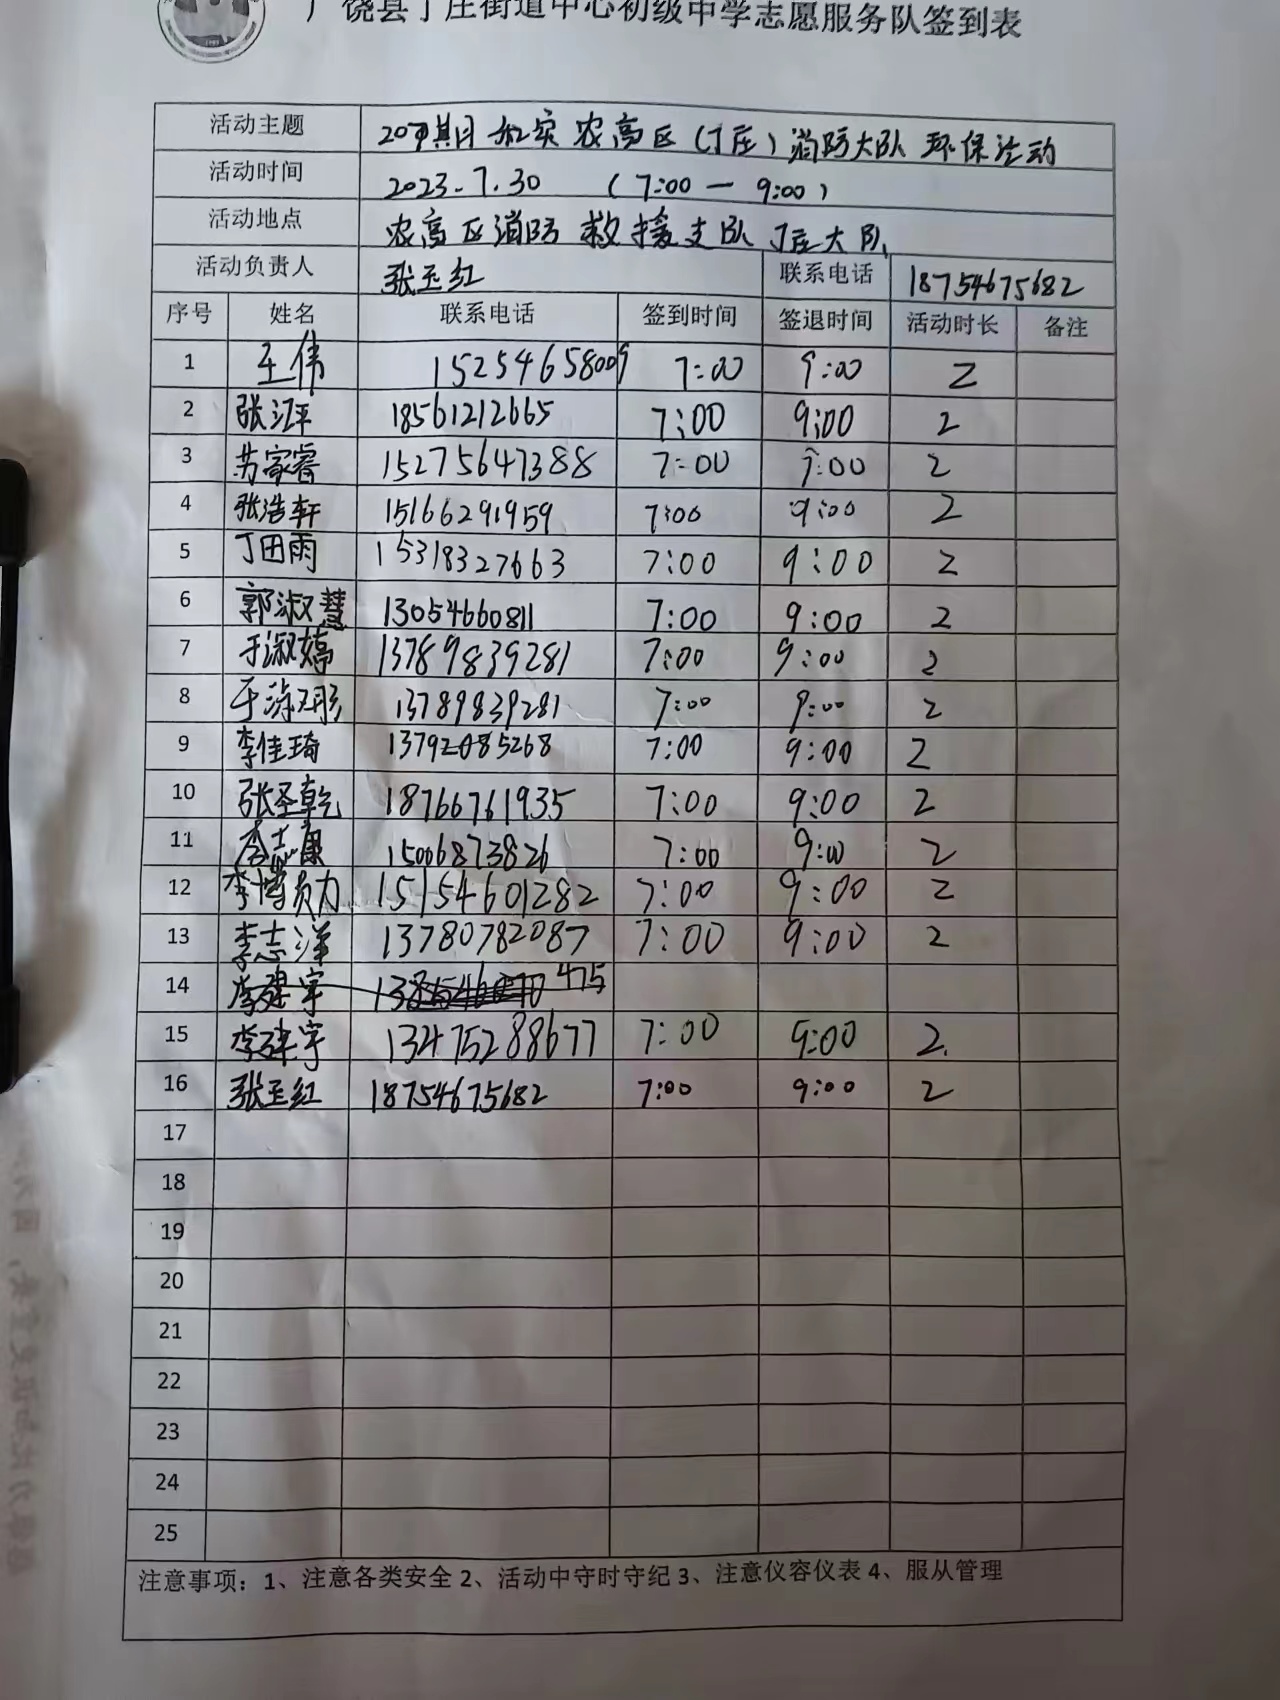 广饶县丁庄街道中心初级中学志愿服务队签到表
活动主题 农高区(丁庄)消防大队 环保活动
活动时间 2023.7.30 (7:00-9:00)
活动地点 农高区消防救援支队丁庄大队
活动负责人 张玉红 联系电话 18754675682
序号 姓名 联系电话 签到时间 签退时间 活动时长 备注
1 王伟 15254658009 7:00 9:00 2
2 张江平 18561212665 7:00 9:00 2
3 苏家睿 15275647388 7:00 9:00 2
4 张浩轩 15166291959 7:00 9:00 2
5 丁田雨 15318327663 7:00 9:00 2
6 郭淑慧 13054660811 7:00 9:00 2
7 于淑婷 13789839281 7:00 9:00 2
8 于 13789839281 7:00 9:00 2
9 李佳琦 13792085268 7:00 9:00 2
10 张圣乾 18766761935 7:00 9:00 2
11 李志康 15006873826 7:00 9:00 2
12 李博 15154601282 7:00 9:00 2
13 李志洋 13780782087 7:00 9:00 2
14 李建宇 475
15 李建宇 13475288677 7:00 9:00 2
16 张玉红 18754675682 7:00 9:00 2
17
18
19
20
21
22
23
24
25
注意事项：1、注意各类安全 2、活动中守时守纪 3、注意仪容仪表 4、服从管理